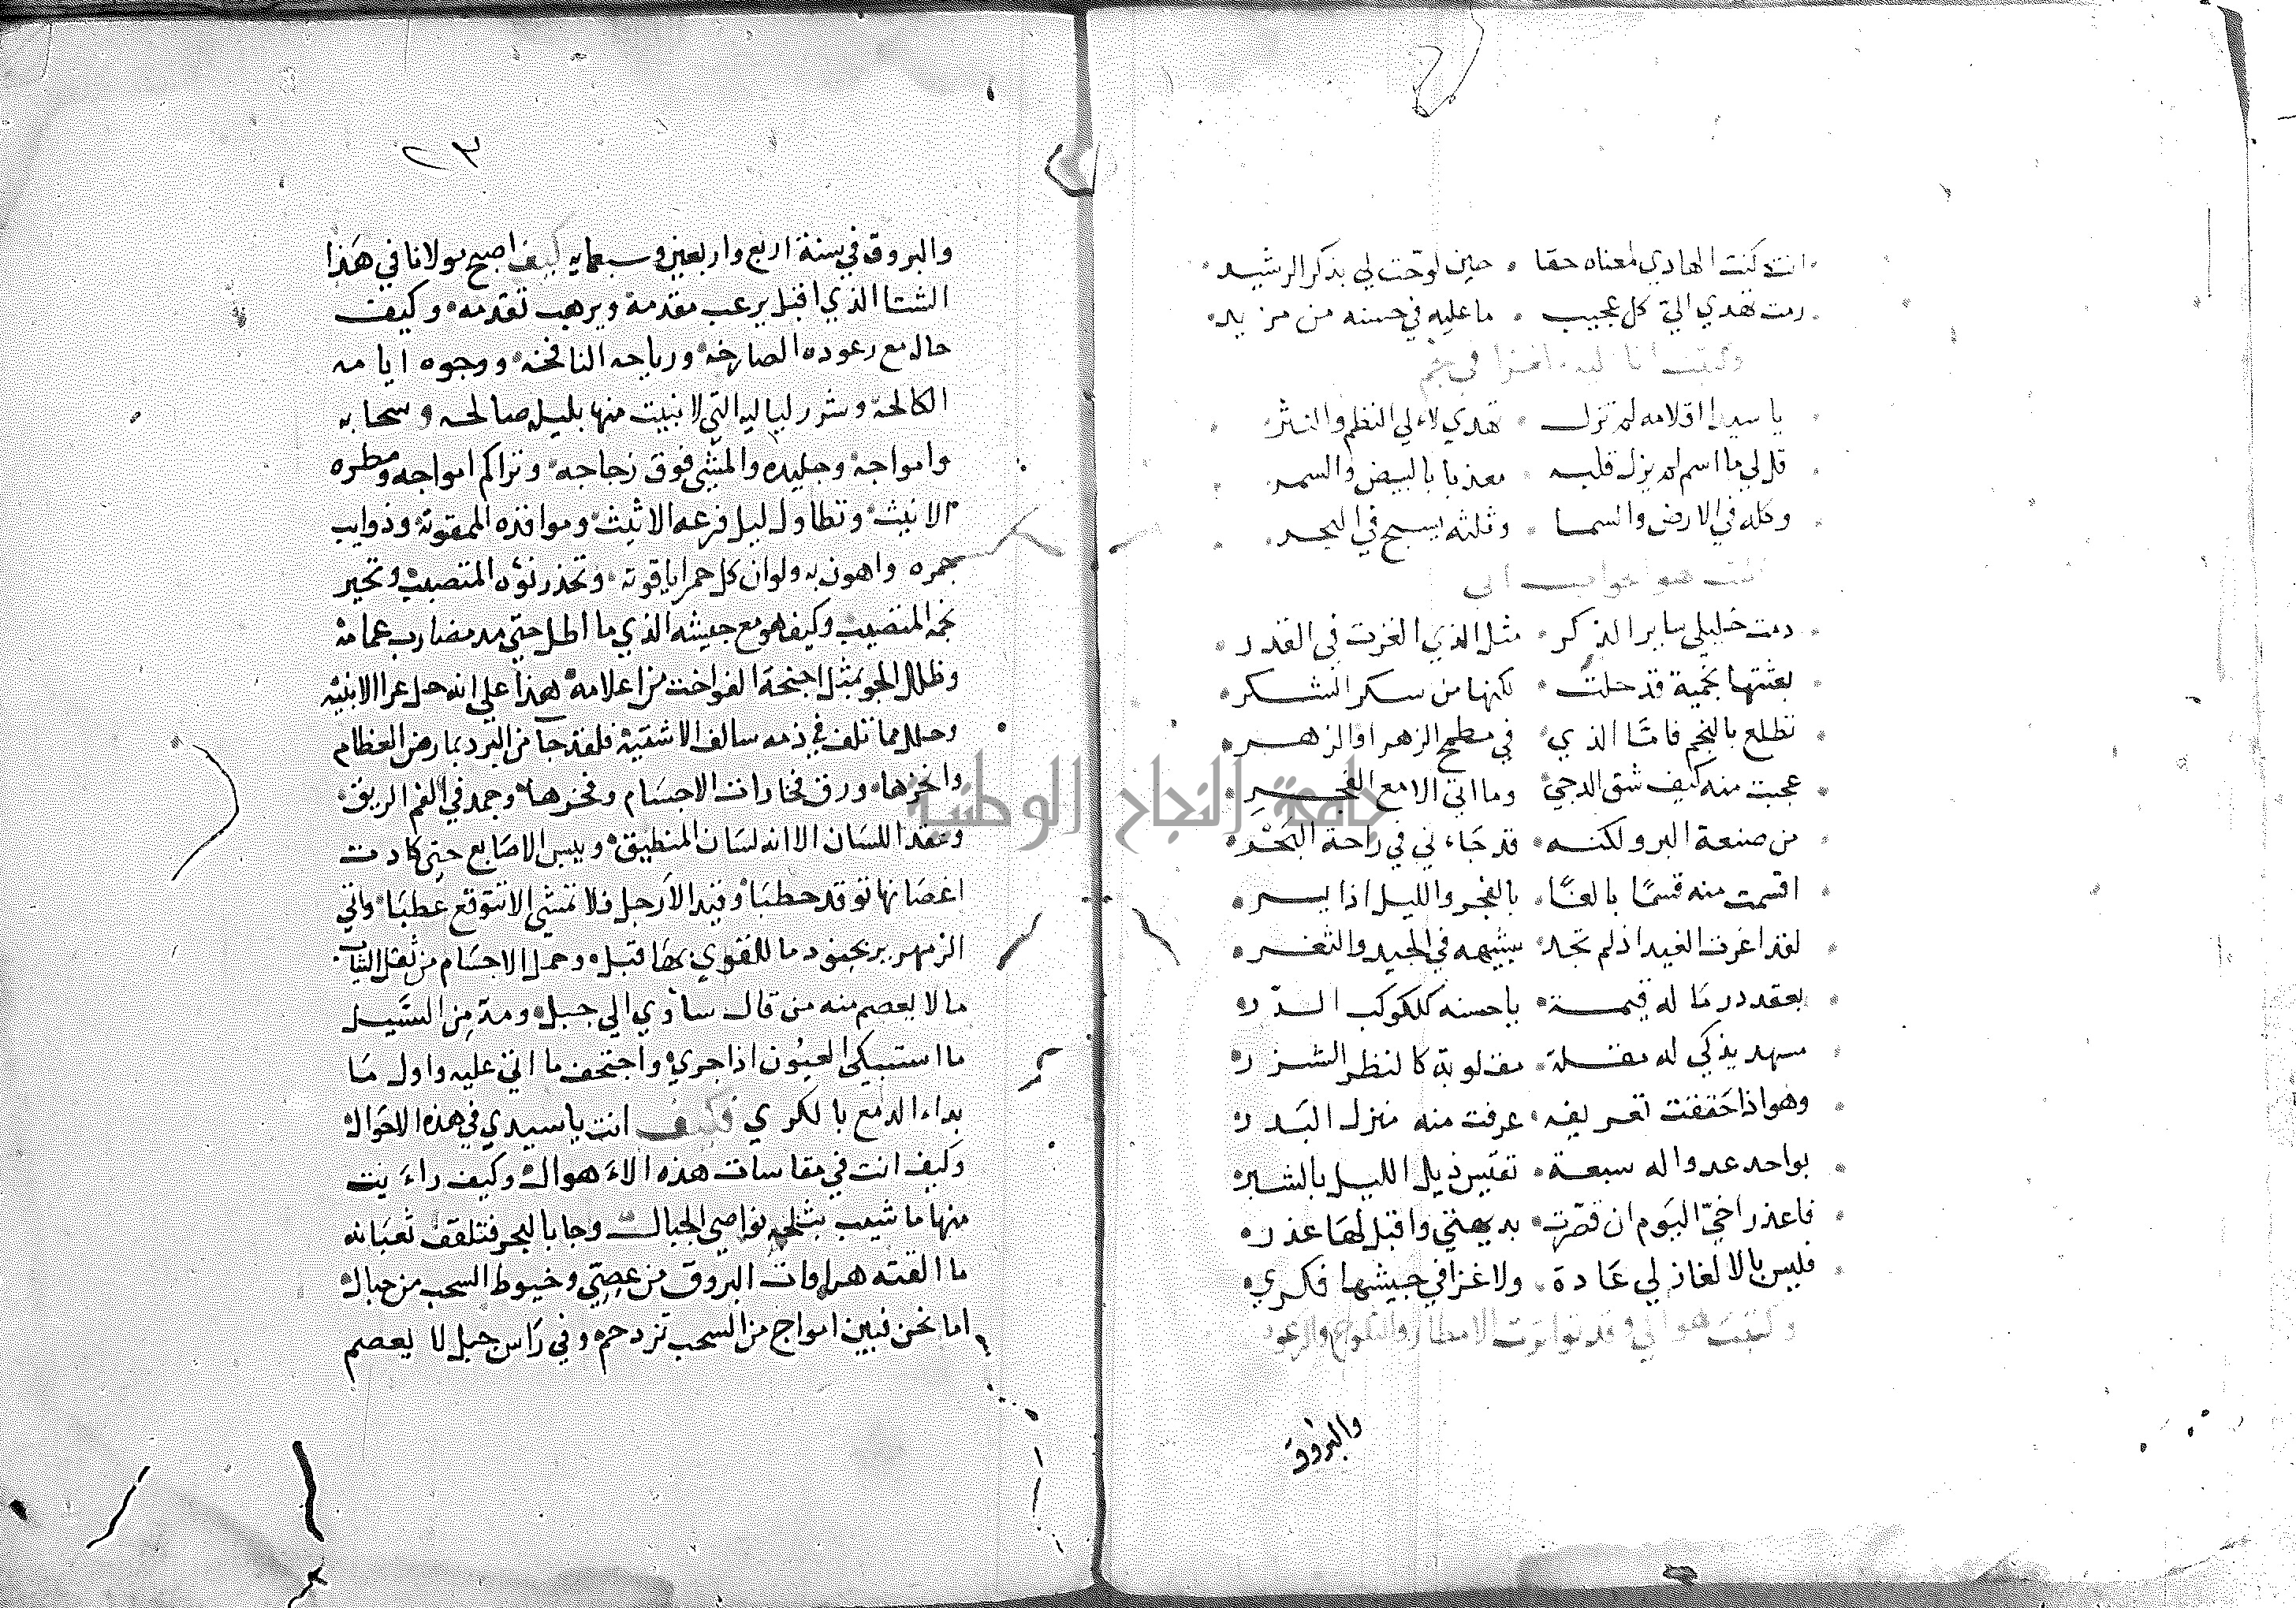 انت كنت الهادي لمعناه حقا · حين لوحت لي بذكر الرشيد
دمت تهدي الي كل عجيب · ما عليه في حسنه من مزيد
وكتبت انا اليه ملغزا في نجم
يا سيدا اقلامه لم تزل · تهدي لآلي النظم والنثر
قل لي ما اسم لم يزل قلبه · معذبا بالبيض والسمر
وكله في الارض والسما · وثلثه يسبح في البحر
فكتب هو الجواب الي
دمت خليلي سابر الذكر · مثل الذي الغزت في القدر
بعثتها نجمية قد حلت · لكنها من سكر الشكر
تطلع بالنجم فاما الذي · في مطمح الزهر او الزهر
عجبت منه كيف شق الدجي · وما اتي الا مع الفجر
من صنعة البر ولكنه · قد جاءني في راحة البحر
اقسمت منه قسما بالغا · بالفجر والليل اذا يسر
لقد اغرت الغيد اذ لم تجد · شبيهه في الجيد والثغر
بعقد در ما له قيمة · يا حسنه كالكوكب الدر
مسهد يذكي له مقلة · مقلوبة كالنظر الشزر
وهو اذا حققت تعريفه · عرفت منه منزل البدر
بواحد عدوا له سبعة · تقيس ذيل الليل بالشبر
فاعذر اخي اليوم ان قصرت · بديهتي واقبل لها عذر
فليس بالالغاز لي عادة · ولا غزا في جيشها فكري
وكتبت هو الي وقد تواترت الامطار والثلوج والرعود
والبروق
٢٣
والبروق في سنة اربع واربعين وسبعمايه كيف اصبح مولانا في هذا
الشتا الذي اقبل يرعب مقدمه ويرهب تقدمه وكيف
حاله مع رعوده الصارخة ورياحه النافخة ووجوه ايامه
الكالحة وشرر لياليه التي لا نبيت منها بليلة صالحه وسحابه
وامواجه وجليده والمشي فوق زجاجه وتراكم امواجه ومطره
الانيث وتطاول ليل فرعه الاثيث ومواقده الممقوته وذوايب
جمره واهون به ولو ان كل حمرا ياقوته وتحذر نوه المتصبب وتحير
نجمه المتصبب وكيف هو مع جيشه الذي ما اطل حتي مد مضارب غمامه
وظلل الجو بمثل اجنحة الفواخت من اعلامه هذا علي انه حل عرا الابنيه
وحلل مما تلف في ذمه سالف الاشتيه فلقد جا من البرد بما رض العظام
وانخرها ورق فخارات الاجسام وفخرها وجمد في الفم الريق
وعقد اللسان الا انه لسان المنطيق ويبس الاصابع حتي كادت
اغصانها توقد حطبا وقيد الارجل فلا تمشي الا تتوقع عطبا واتي
الزمهرير بجنود ما للقوي بها قبل وحمل الاجسام من ثقل الثياب
ما لا يعصم منه من قال ساوي الي جبل ومد من السيل
ما استبكي العيون اذا جري واجتحف ما اتي عليه واول ما
بدا الدمع بالكري فكيف انت يا سيدي في هذه الاحوال
وكيف انت في مقاسات هذه الاهوال وكيف رايت
منها ما شيب بثلجه نواصي الجبال وجا بالبحر فتلقف ثعبانه
ما القته هراوات البروق من عصي وخيوط السحب من حبال
اما نحن فبين امواج من السحب تزدحم وفي راس جبل لا يعصم